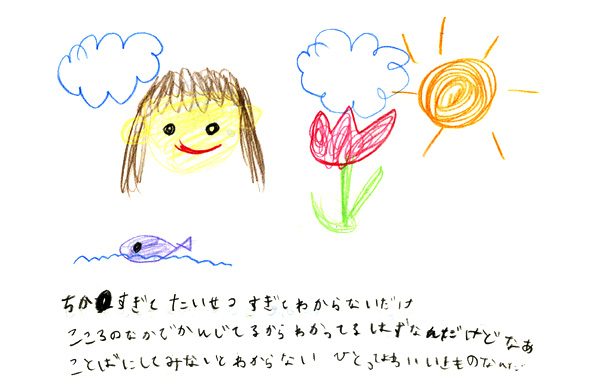 ちかすぎて たいせつ すぎてわからないだけ
こころのなかでかんじてるから わかってる はずなんだけどなあ
ことばにしてみないとわからない ひとってよわいいきものなんだ